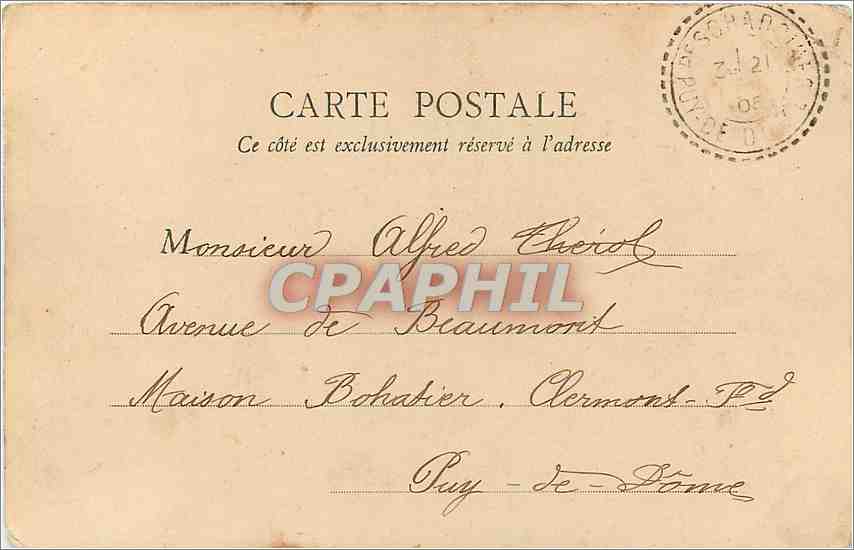 CARTE POSTALE
Ce côté est exclusivement réservé à l'adresse
21
PUY-DE-DÔME
Monsieur Alfred Thérol
CPAPHIL
Avenue de Beaumont
Maison Bohatier. Clermont-Fd
Puy-de-Dôme